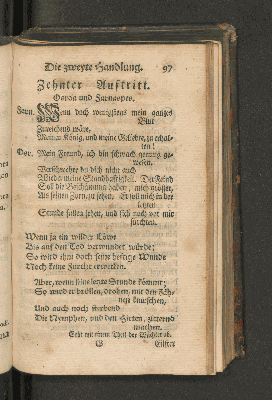 Die zweyte Handlung. 97
Zehnter Auftritt.
Darvn. Wenn doch wenigstens mein ganzes
Blut
Zureichend wäre,
Meinen König, und meine Geliebte, zu erhal-
ten!
Dar. Mein Freund, ich bin schwach genung ge-
wesen.
Verschwehre du dich nicht auch
Wieder meine Standhaftigkeit. Der Feind
Soll die Beschämung haben, mich größer,
Als seinen Zorn, zu sehen. Er soll mich in der
letzten
Stunde fallen sehen, und sich noch vor mir
fürchten.
Wenn ja ein wilder Löwe
Bis auf den Tod verwundet würde;
So wird ihm doch seine heftige Wunde
Noch keine Furcht erwecken.
Aber, wenn seine letzte Stunde kömmt;
So wird er brüllen, drohen, mit den Zäh-
nen knirschen,
Und auch noch sterbend
Die Nymphen, und den Hirten, zitternd
machen.
Geht mit einem Theil der Wachter ab.
G Eilfter